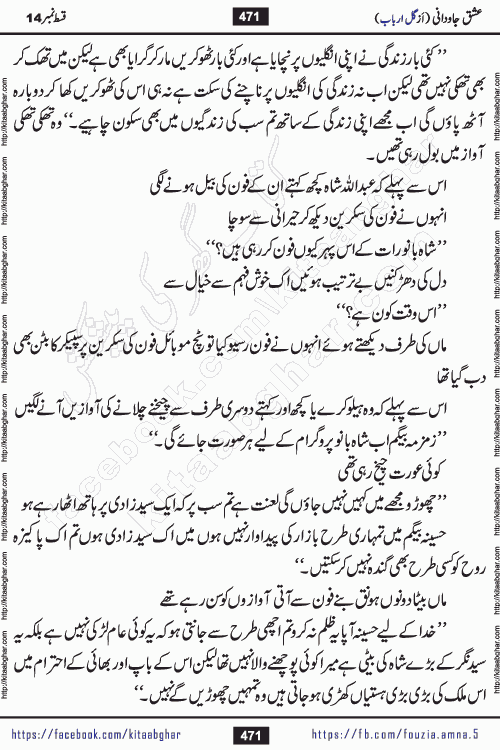 عشق جاودانی (از گل ارباب)
471
قسط نمبر 14
’’کئی بار زندگی نے اپنی انگلیوں پر نچایا ہے اور کئی بار ٹھوکریں مار کر گرایا بھی ہے لیکن میں تھک کر
بھی تھکی نہیں تھی لیکن اب نہ زندگی کی انگلیوں پر ناچنے کی سکت ہے نہ ہی اس کی ٹھوکریں کھا کر دوبارہ
اُٹھ پاؤں گی اب مجھے اپنی زندگی کے ساتھ تم سب کی زندگیوں میں بھی سکون چاہیے۔‘‘ وہ تھکی تھکی
آواز میں بول رہی تھیں۔
اس سے پہلے کہ عبداللہ شاہ کچھ کہتے ان کے فون کی بیل ہونے لگی
انہوں نے فون کی سکرین دیکھ کر حیرانی سے سوچا
’’شاہ بانو رات کے اس پہر کیوں فون کر رہی ہیں؟‘‘
دل کی دھڑکنیں بے ترتیب ہوئیں اک خوش فہم سے خیال سے
’’اس وقت کون ہے؟‘‘
ماں کی طرف دیکھتے ہوئے انہوں نے فون رسیو کیا تو ٹچ موبائل فون کی سکرین پر سپیکر کا بٹن بھی
دب گیا تھا
اس سے پہلے کہ وہ ہیلو کرے یا کچھ اور کہتے دوسری طرف سے چیخنے چلانے کی آوازیں آنے لگیں
’’زمزمہ بیگم اب شاہ بانو پروگرام کے لیے ہر صورت جائے گی۔‘‘
کوئی عورت چیخ رہی تھی
’’چھوڑو مجھے میں کہیں نہیں جاؤں گی لعنت ہے تم سب پر کہ ایک سید زادی پر ہاتھ اٹھا رہے ہو
حسینہ بیگم میں تمہاری طرح بازار کی پیداوار نہیں ہوں میں اک سید زادی ہوں تم اک پاکیزہ
روح کو کسی طرح بھی گندہ نہیں کر سکتیں۔‘‘
ماں بیٹا دونوں ہونق بنے فون سے آتی آوازوں کو سن رہے تھے
’’خدا کے لیے حسینہ آپا یہ ظلم نہ کرو تم اچھی طرح سے جانتی ہو کہ یہ کوئی عام لڑکی نہیں ہے بلکہ یہ
سید نگر کے بڑے شاہ کی بیٹی ہے میرا کوئی پوچھنے والا نہیں تھا لیکن اس کے باپ اور بھائی کے احترام میں
اس ملک کی بڑی بڑی ہستیاں کھڑی ہو جاتی ہیں وہ تمہیں چھوڑیں گے نہیں۔‘‘
https://facebook.com/kitaabghar
471
https://fb.com/fouzia.amna.5
http://kitaabghar.com
کتاب گھر کی پیشکش
facebook.com/kitaabghar
kitaabghar.com